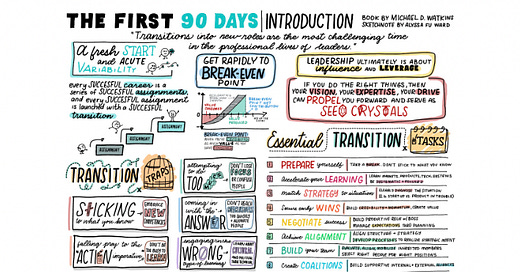 THE FIRST 90 DAYS | INTRODUCTION
BOOK BY MICHAEL D. WATKINS
SKETCHNOTE BY ALYSSA FU WARD
"Transitions into new roles are the most challenging time
in the professional lives of leaders."
A fresh START
and ACUTE
VARIABILITY
every SUCCESFUL career is a
series of SUCCESSFUL assignments,
and every SUCCESSFUL assignment
is launched with a SUCCESFUL
transition.
ASSIGNMENT
ASSIGNMENT
ASSIGNMENT
GET RAPIDLY TO
BREAK-EVEN
POINT
BREAK-EVEN POINT:
LEADERSHIP ULTIMATELY IS ABOUT
influence AND LEVERAGE
IF YOU DO THE RIGHT THINGS, THEN
YOUR VISION, YOUR EXPERTISE, YOUR DRIVE
CAN PROPEL YOU FORWARD AND SERVE AS
SEED CRYSTALS
TRANSITION TRAPS
attempting to
do TOO
STICKING to
what you know
EMBRACE
NEW
coming in
with "the"
ANSWER
falling prey to the
"ACTION imperative"
engaging in the
WRONG
type of learning
Essential TRANSITION TASKS
1 PREPARE yourself
TAKE A BREAK. DON'T STICK TO WHAT YOU KNOW
2 Accelerate your LEARNING
3 Match STRATEGY to situation
4 Secure early WINS
BUILD CREDIBILITY + MOMENTUM, CREATE VALUE
5 NEGOTIATE success
MANAGE EXPECTATIONS AND PLANNING
6 Achieve ALIGNMENT
ALIGN STRUCTURE + STRATEGY
7 BUILD your team
RIGHT PEOPLE FOR RIGHT POSITIONS
8 Create COALITIONS
BUILD SUPPORTIVE INTERNAL + EXTERNAL ALLIANCES